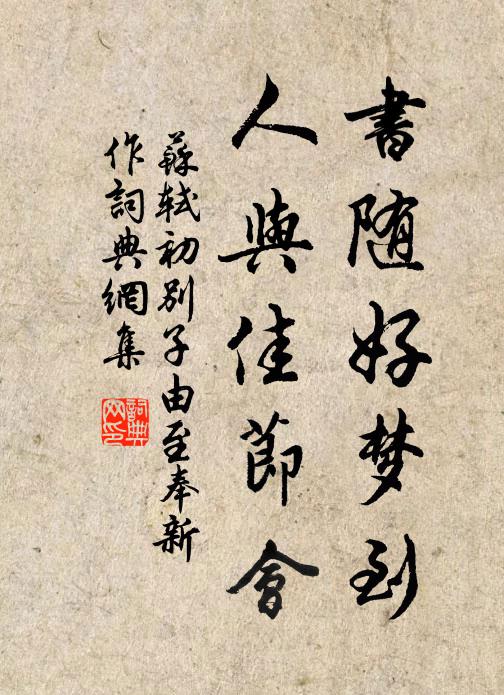 書随好梦到
人與佳節會
蘇軾初别子由至奉新
作詞典網集
詞典网印